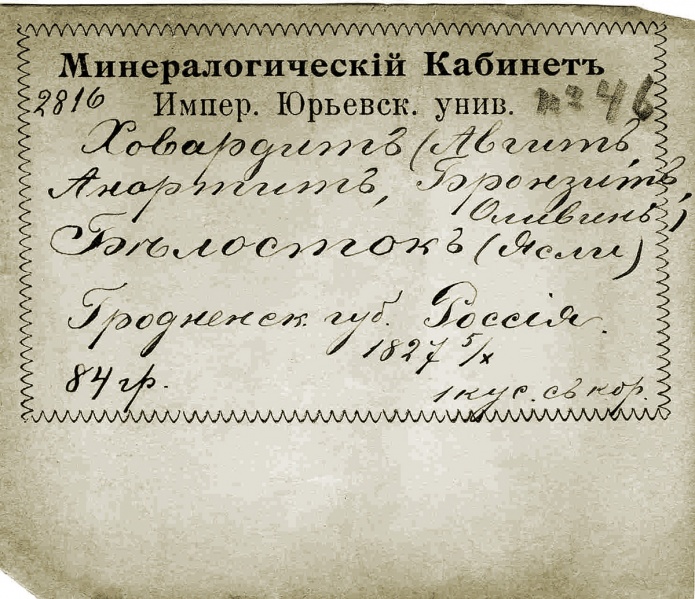 Минералогическій Кабинетъ
2816 Импер. Юрьевск. унив. № 46
Ховардитъ (Авгитъ,
Анортитъ, Бронзитъ,
Оливинъ)
Бѣлостокъ (Ясли)
Гродненск. губ. Россія.
1827 5/X
84 гр.
1 кус. съ кор.